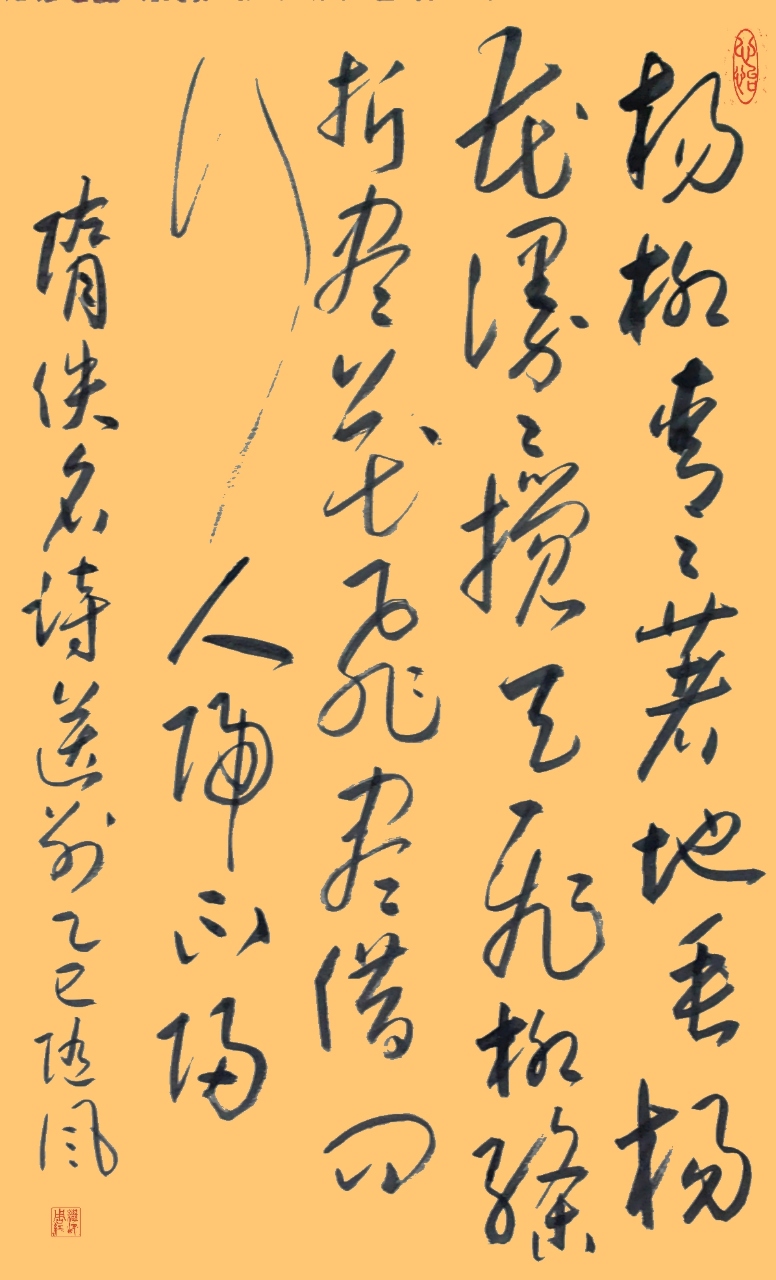 楊柳青〻著地垂楊
花漫〻攪天飛柳條
折盡花飛盡借問
行人歸不歸
隋佚名詩送別乙巳隨風